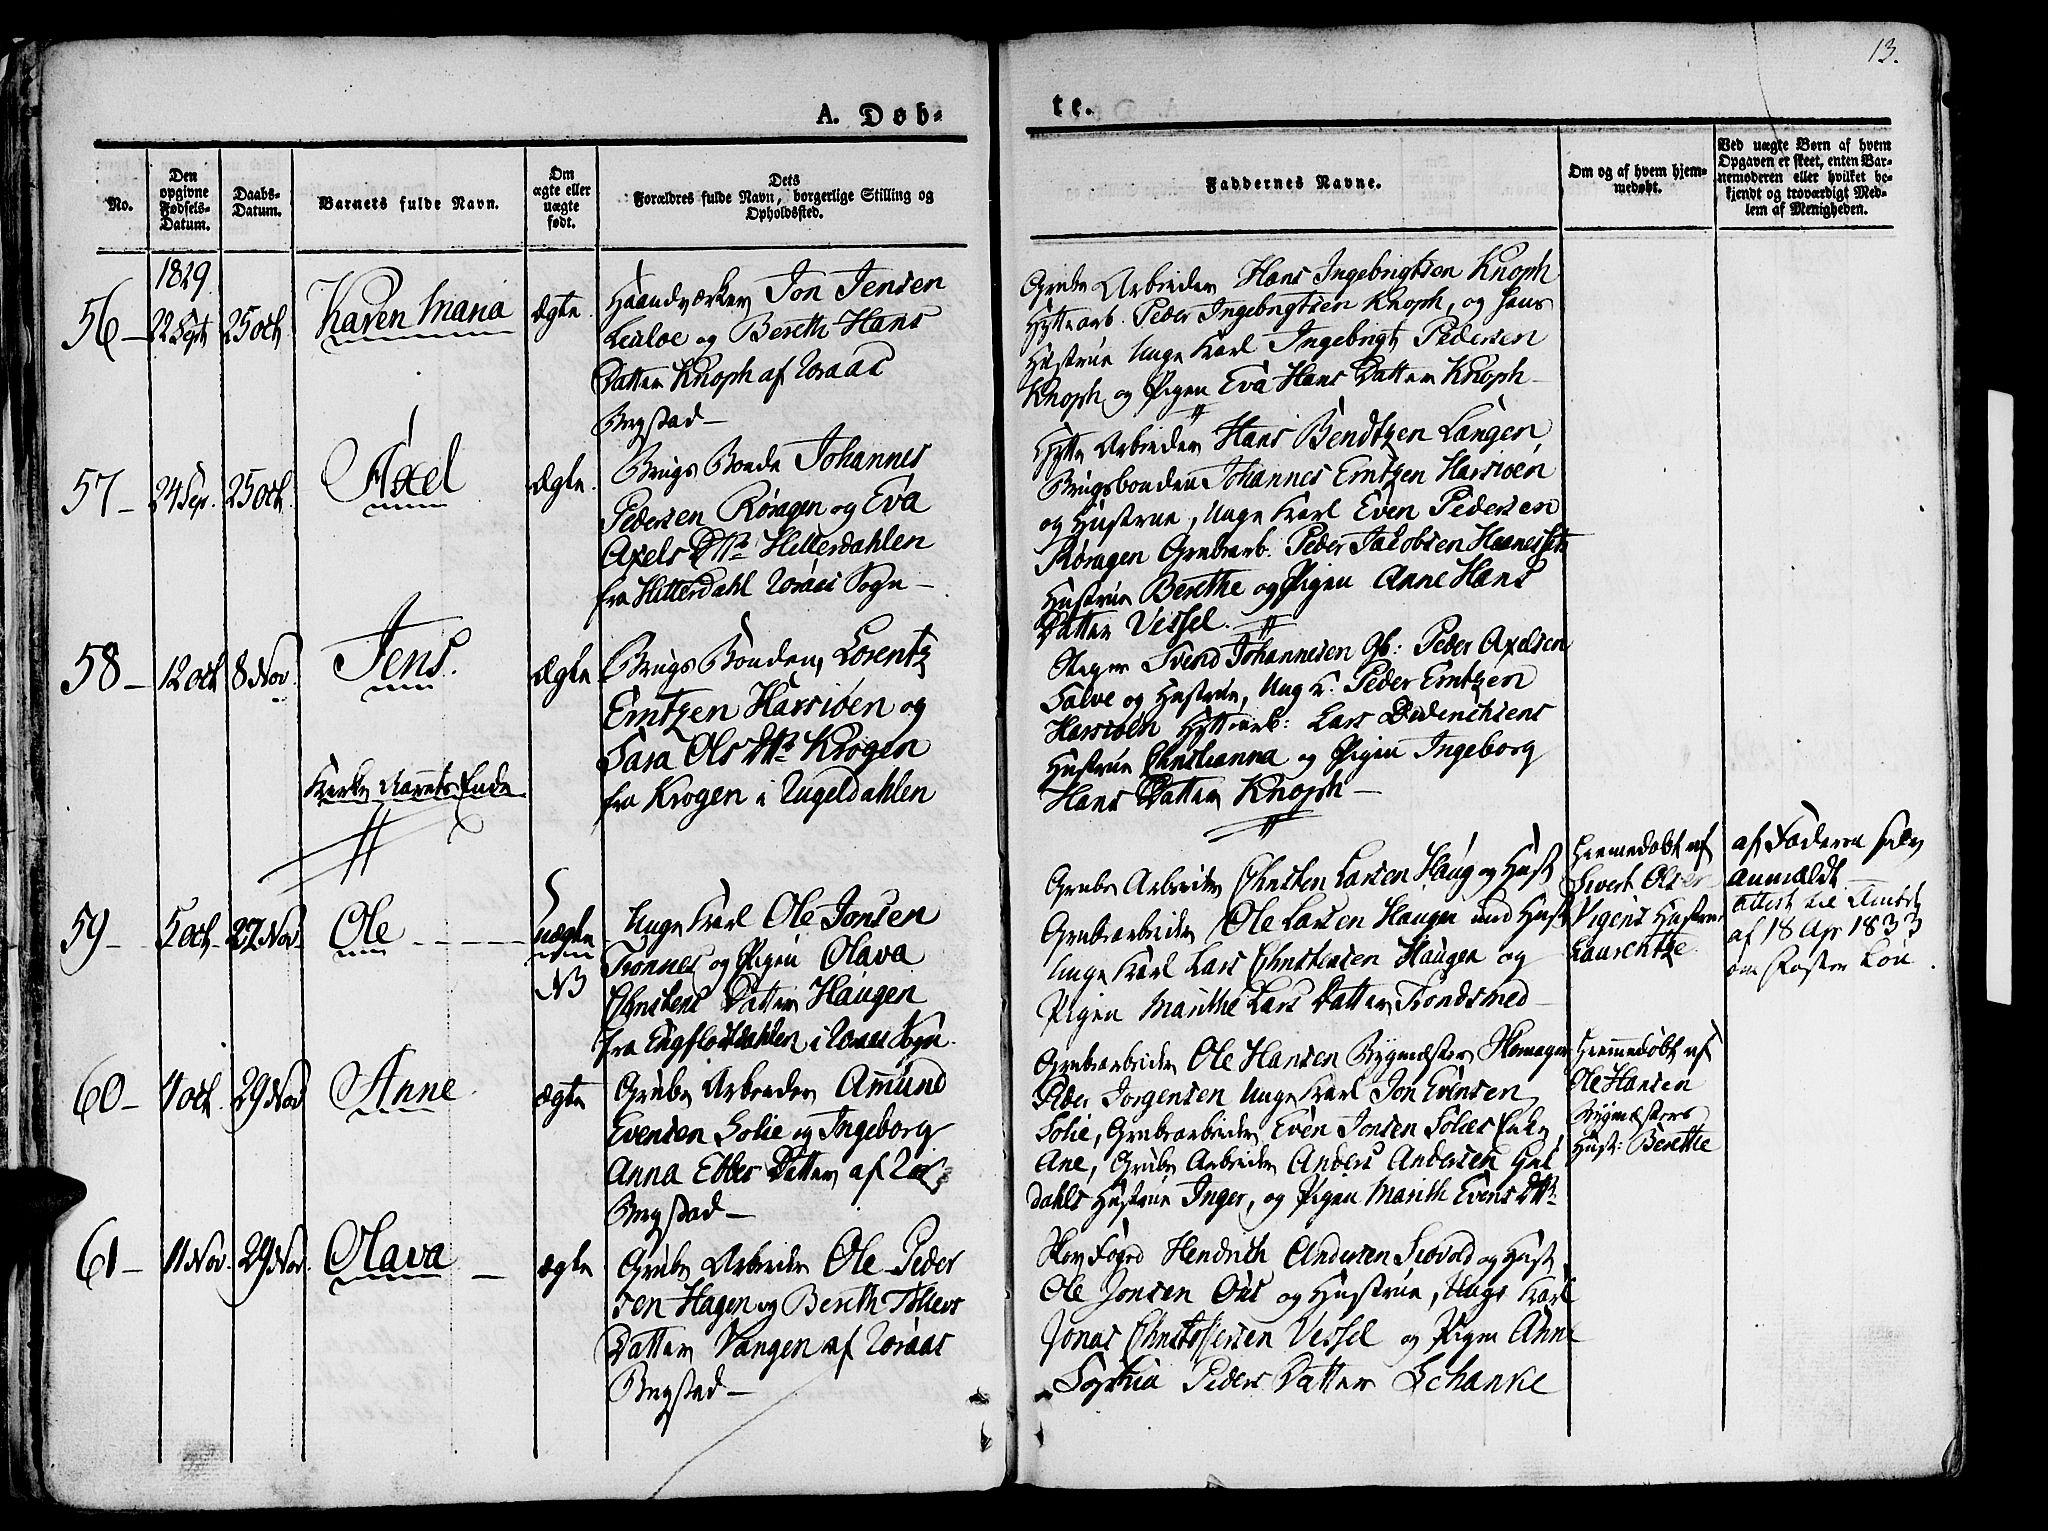 13.
A. Døb-
te.
No.
Den opgivne Fødsels-Datum.
Daabs-Datum.
Barnets fulde Navn.
Om ægte eller uægte født.
Dets
Forældres fulde Navn, borgerlige Stilling og
Opholdssted.
Faddernes Navne.
Om og af hvem hjem-
medøbt.
Ved uægte Børn af hvem
Opgaven er skeet, enten Bar-
nemoderen eller hvilket be-
kjendt og troværdigt Med-
lem af Menigheden.
1829
56 – 22 Sept 25 Oct. Karen Maria Ægte.
Haandværker Jon Jensen
og Bereth Hans
Datter Knoph af Röraas
Bergstad –
Grube Arbeider Hans Ingebrigtson Knoph
Hyttearb. Peder Ingebrigtsen Knoph, og hans
Hustrue Unge Karl Ingebrigt Pedersen
Knoph og Pigen Eva Hans Datter Knoph –
57 – 24 Sep. 25 Oct. Axel Ægte.
Brugs Bonde Johannes
Pedersen Røragen og Eva
Axels Dtr Hitterdahlen
fra Hitterdahl Röraas Sogn –
Hytte Arbeider Hans Bendtzen Langen,
Brugsbonden Johannes Erntzen Harsiøen
og Hustrue, Unge Karl Even Pedersen
Røragen Grubearb. Peder Jacobsen
Hustrue Berthe og Pigen Anne Hans
Datter Vessel.
58 – 12 Oct 8 Nov. Jens. Ægte
Brugs Bonden, Lorentz
Erntzen Harsiøen og
Sara Ols Dtr Krogen
fra Krogen i Rugeldahlen
Svend Johannesen Gb: Peder Axelsen
Galve og Hustrue, Ung K. Peder Erntzen
Harsiøen Hyttearb: Lars Diderichsens
Hustrue Christianna og Pigen Ingeborg
Hans Datter Knoph –
Kirke Aarets Ende
59 – 5 Oct. 22 Nov. Ole – – – uægte
NB
Unge Karl Ole Jonsen
Tronnes og Pigen Olava
Christens Datter Haugen
fra i Röraas Sogn.
Grube Arbeider Christen Larsen Haug og Hust
Grubearbeider Ole Larsen Haugen med Hust
Unge Karl Lars Christensen Haugen og
Pigen Marithe Lars Datter Trondsmed –
Hiemmedøbt af
Sivert Olsen
Vigens Hustrue
Laurentze
af Faderen selv
anmældt
Attest til Amtet
af 18 Apr 1833
om Løn.
60 – 4 Oct. 29 Nov Anne. Ægte
Grube Arbeider Amund
Evensen Solie og Ingeborg
Anna Ebbes Datter af
Bergstad –
Grubearbeider Ole Hansen Bygmæster
Peder Jorgensen Unge Karl Jon Evensen
Solie, Grubearbeider Even Jonsen Solies Enke,
Ane, Grube Arbeider Anders Andersen Gul
dahls Hustrue Inger, og Pigen Marith Evens Dtr.
Hiemmedøbt af
Ole Hansen
Bygmæsters
Hust: Berethe
61 – 11 Nov. 29 Nov. Olava – ægte
Grube Arbeider Ole Peder
sen Hagen og Bereth Tollevs
Datter Vangen af Röraas
Bergstad –
Skov Foged Hendrich Andersen Siovold og Hust.
Ole Jonsen Oüs og Hustrue, Unge Karl
Jonas Christophersen Vessel og Pigen Anne
Sophia Peders Datter Schanke